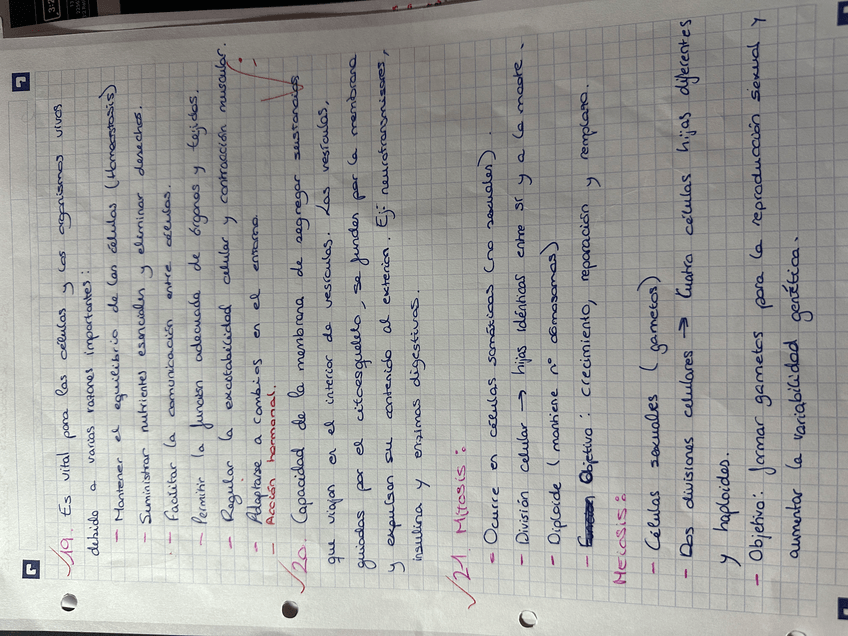 19. Es vital para las células y los organismos vivos
debido a varias razones importantes:
- Mantener el equilibrio de las células (Homeostasis)
- Suministrar nutrientes esenciales y eliminar desechos.
- Facilitar la comunicación entre células.
- Permitir la función adecuada de órganos y tejidos.
- Regular la excitabilidad celular y contracción muscular.
- Adaptarse a cambios en el entorno.
- Acción hormonal.
20. Capacidad de la membrana de segregar sustancias
que viajan en el interior de vesículas. Las vesículas,
guiadas por el citoesqueleto, se funden por la membrana
y expulsan su contenido al exterior. Ej: neurotransmisores,
insulina y enzimas digestivos.
21. Mitosis:
- Ocurre en células somáticas (no sexuales).
- División celular → hijas idénticas entre sí y a la madre.
- Diploide (mantiene nº cromosomas)
- Objetivo: crecimiento, reparación y remplazo.
Meiosis:
- Células sexuales (gametos)
- Dos divisiones celulares → Cuatro células hijas diferentes
y haploides.
- Objetivo: formar gametos para la reproducción sexual y
aumentar la variabilidad genética.